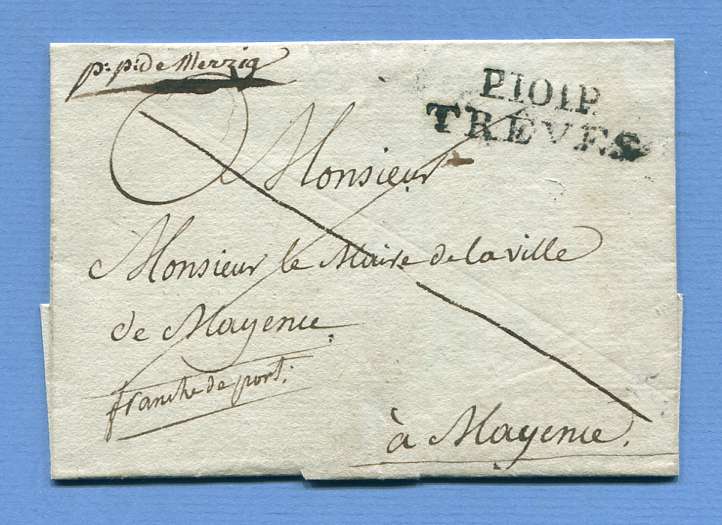 p: p: de Merzig
P.101.P.
TRÊVES
Monsieur
Monsieur le Maire de la ville
de Mayence.
franche de port.
à Mayence.